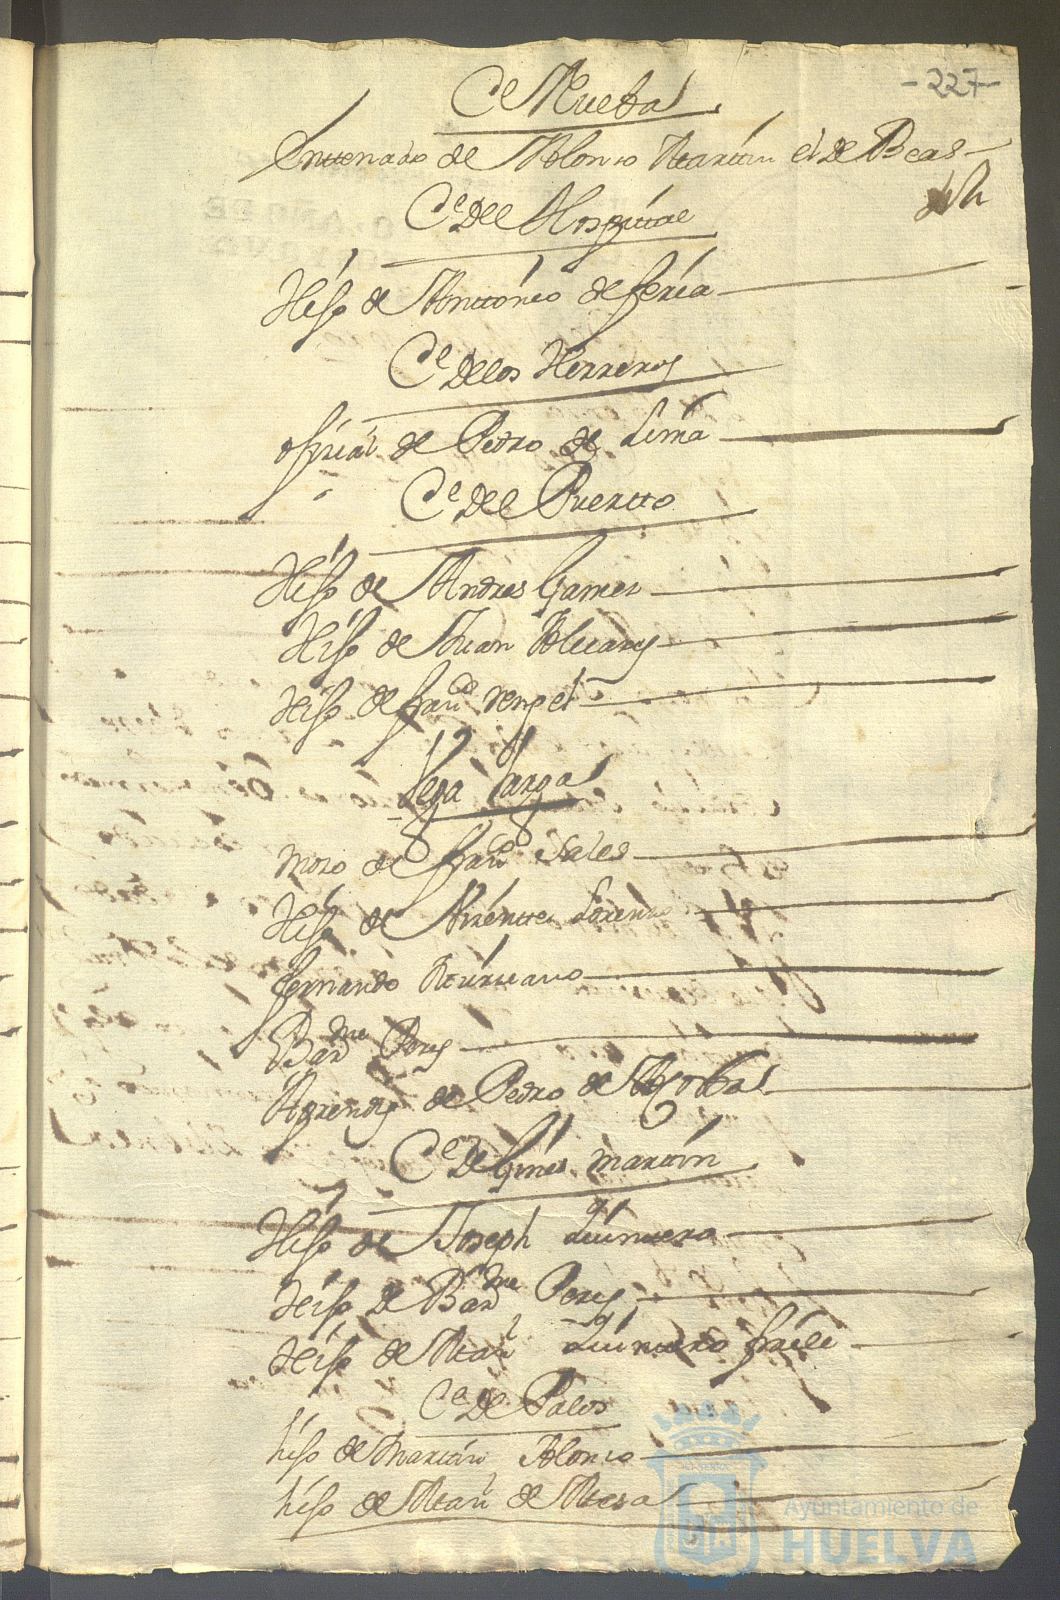 -227-
Ce Nueba
Entenado de Alonso Martin el de Beas
Ce Del Hospittal
Hijo de Anttonio de feria
Ce Delos Herreros
ofizial de Pedro de Lima
Ce Del Puertto
Hijo de Andres Gamez
Hijo de Juan
Hijo de franco renjel
Vega Larga
mozo de franco Sales
Hijo de Vizente Lorenzo
fernando
Barme Perez
Aprendiz de Pedro de
Ce De Gines martin
Hijo de Joseph Quintero
Hijo de Barme Perez
Hijo de Manl Quintero fraile
Ca De Palos
hijo de Martin Alonso
hijo de Manl de Mesa
Ayuntamiento de
HUELVA